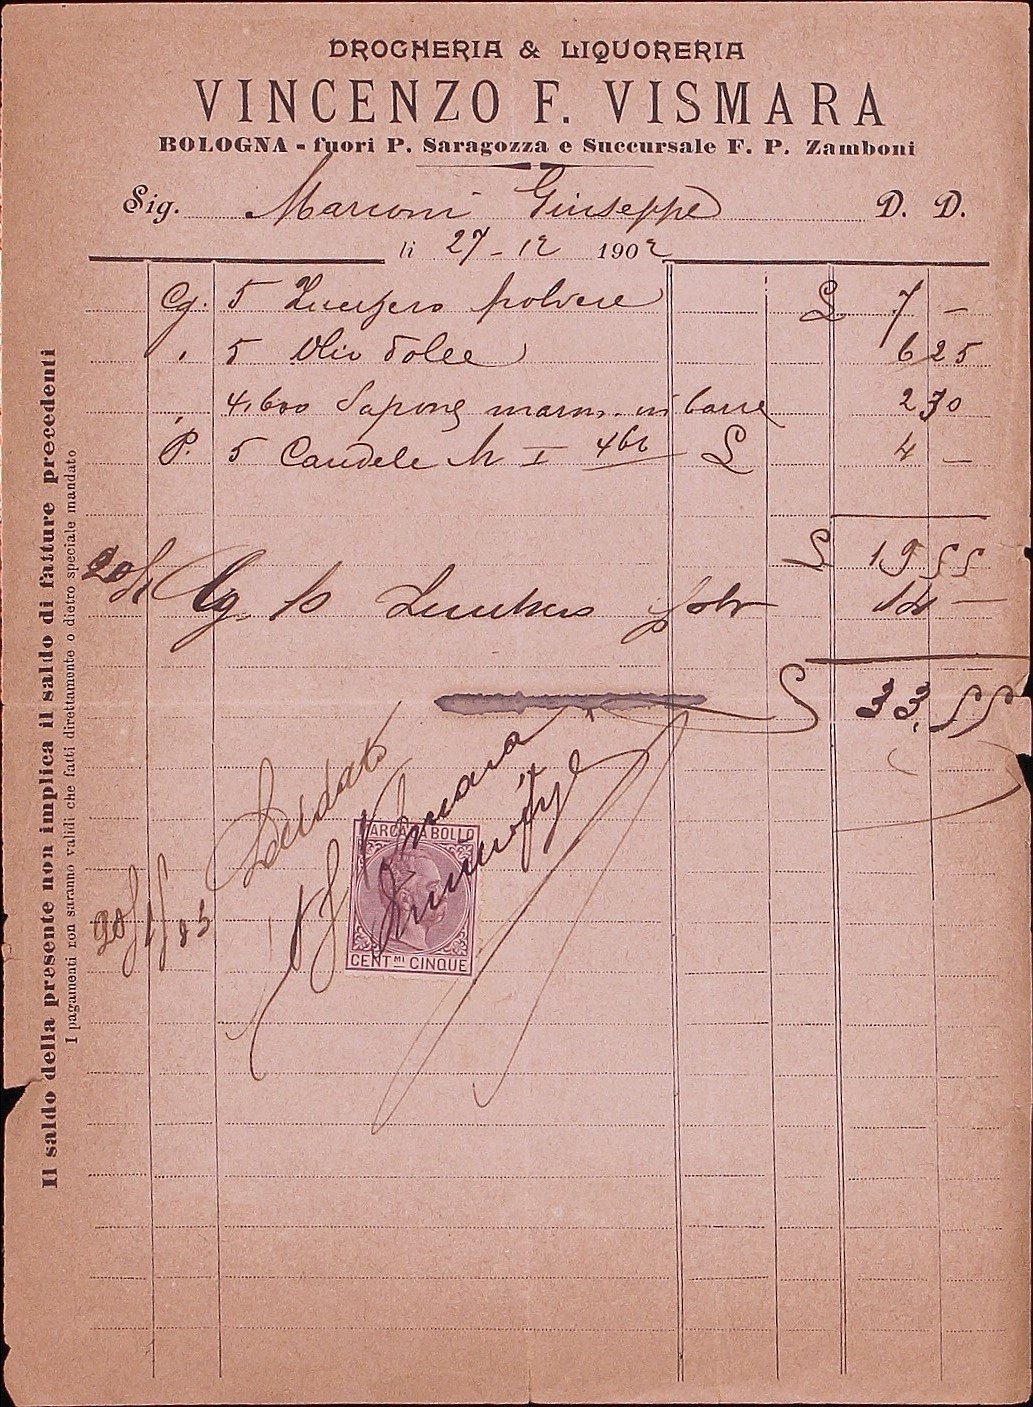 DROGHERIA & LIQUORERIA
VINCENZO F. VISMARA
BOLOGNA - fuori P. Saragozza e Succursale F. P. Zamboni
Sig. Marconi Giuseppe D. D.
li 27 - 12 1902
Cg. 5 Zucchero polvere £ 7 —
" 5 Olio dolce 6 25
" 4,600 Sapone marm. in barre 2 30
P. 5 Candele N I £ 4 —
£ 19 55
20/1 Cg 10 Zucchero polv 14 —
£ 33.55
Saldato
Vismara
20/1/03
MARCA DA BOLLO
CENT.MI CINQUE
Il saldo della presente non implica il saldo di fatture precedenti
I pagamenti non saranno validi che fatti direttamente o dietro speciale mandato